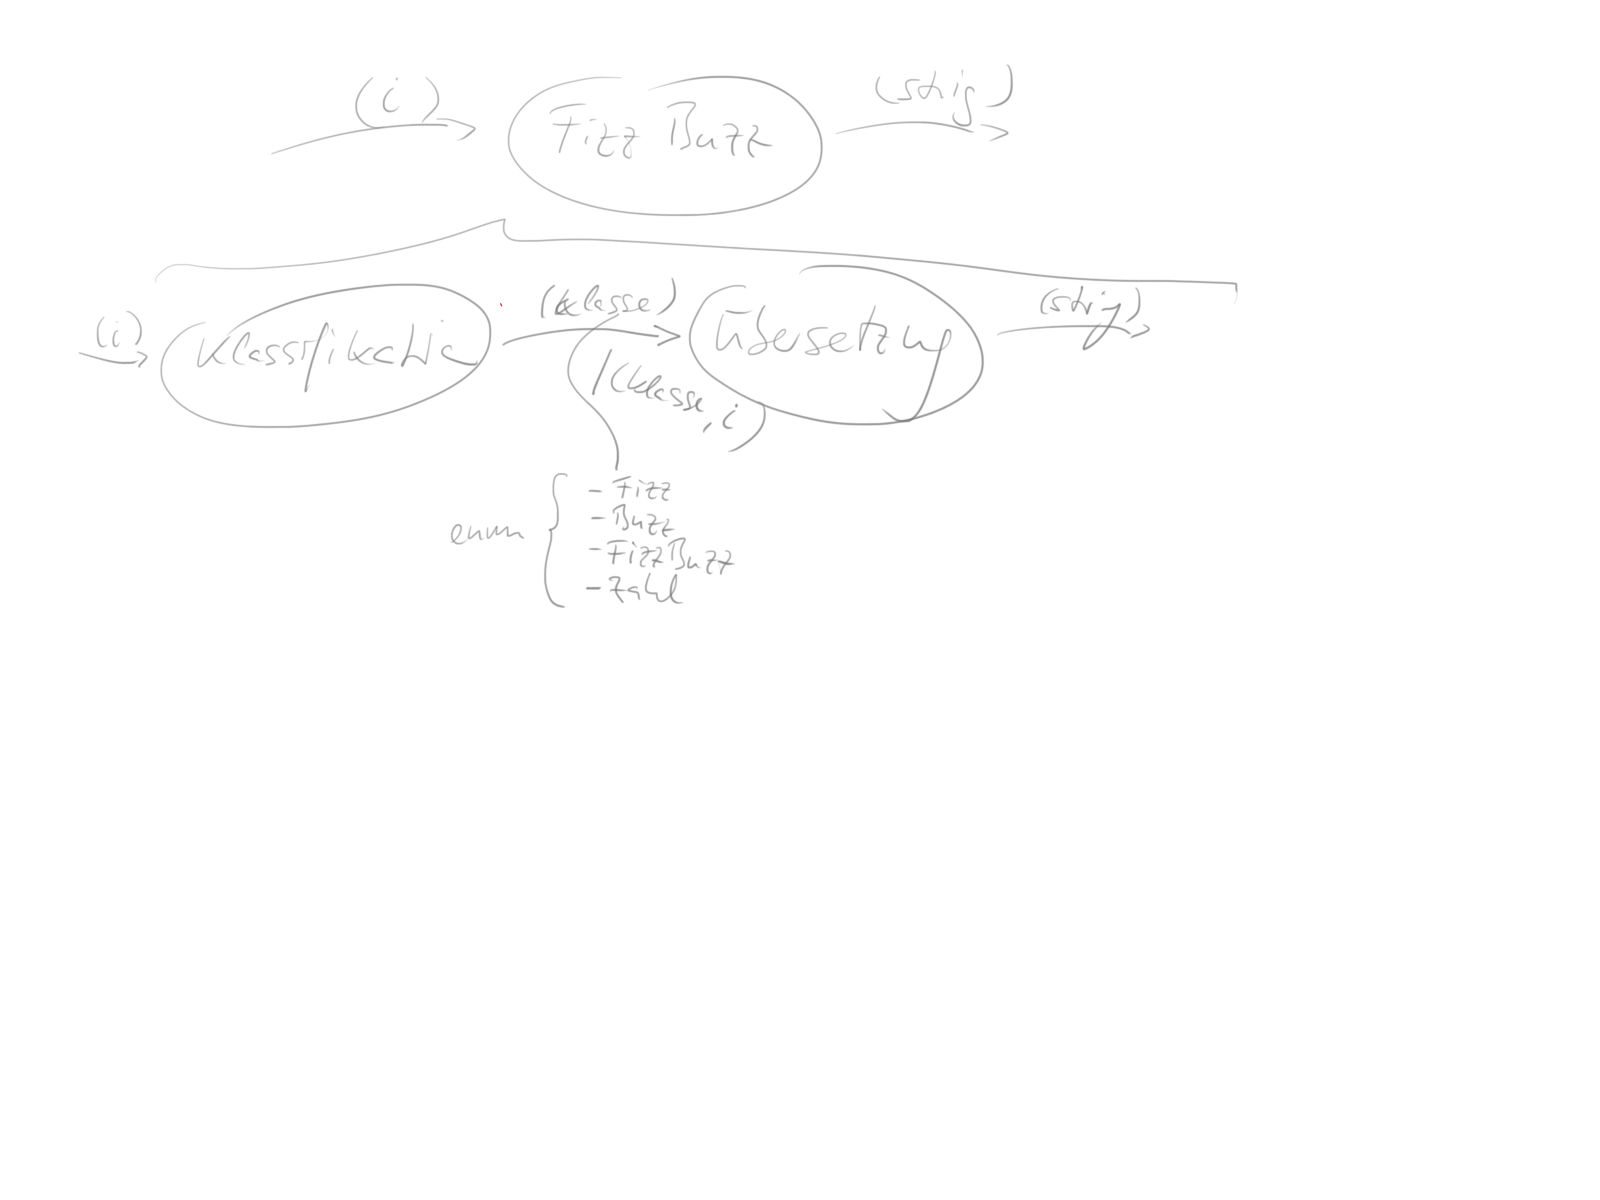 (i)
Fizz Buzz
(string)
(i)
Klassifikation
(klasse)
/(klasse, i)
Übersetzung
(string)
enum
- Fizz
- Buzz
- FizzBuzz
- Zahl